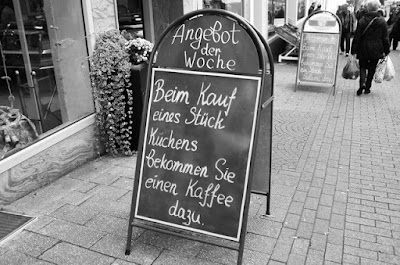 Angebot
der
Woche
Beim Kauf
eines Stück
Kuchens
bekommen Sie
einen Kaffee
dazu.